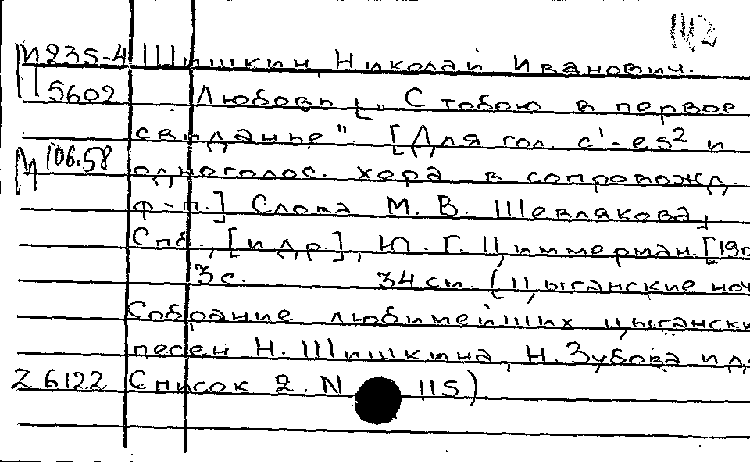 М 235-4 Шишкин, Николай Иванович.
5602 Любовь [„С тобою в первое
свиданье" [Для гол. c¹-es² и
М 106.58 одноголос. хора в сопровожд
ф-п.] Слова М. В. Шевлякова]
Спб., [и др.], Ю. Г. Циммерман. [190
3 с. 34 см. (Цыганские ноч
Собрание любимейших цыгански
песен Н. Шишкина, Н. Зубова и др
Z 6122 Список 2. N 115)